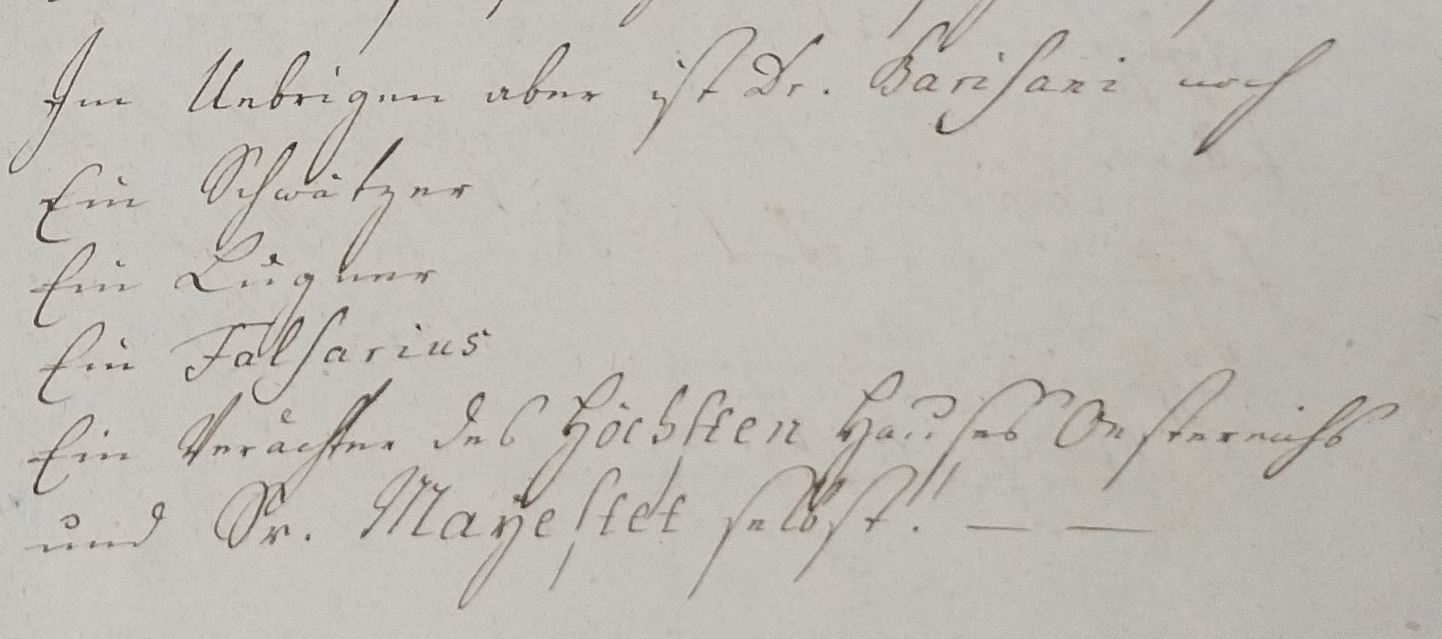 Im Uebrigen aber ist Dr. Barisani noch
Ein Schwätzer
Ein Lügner
Ein Falsarius
Ein Verächter des Höchsten Hauses Oesterreichs
und Sr. Mayestet selbst! — —